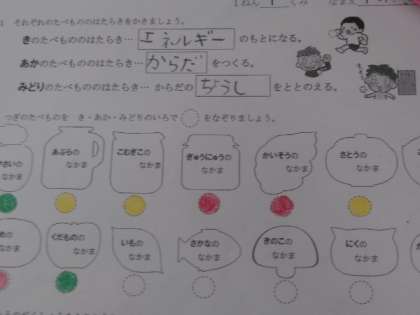 1ねん 1 くみ なまえ
1 それぞれのたべもののはたらきをかきましょう。
きのたべもののはたらき… エネルギー のもとになる。
あかのたべもののはたらき… からだ をつくる。
みどりのたべもののはたらき… からだの ちょうし をととのえる。
つぎのたべものを き・あか・みどりのいろで をなぞりましょう。
さいの なかま あぶらの なかま こむぎこの なかま ぎゅうにゅうの なかま かいそうの なかま さとうの なかま
めの なかま くだものの なかま いもの なかま さかなの なかま きのこの なかま にくの なかま